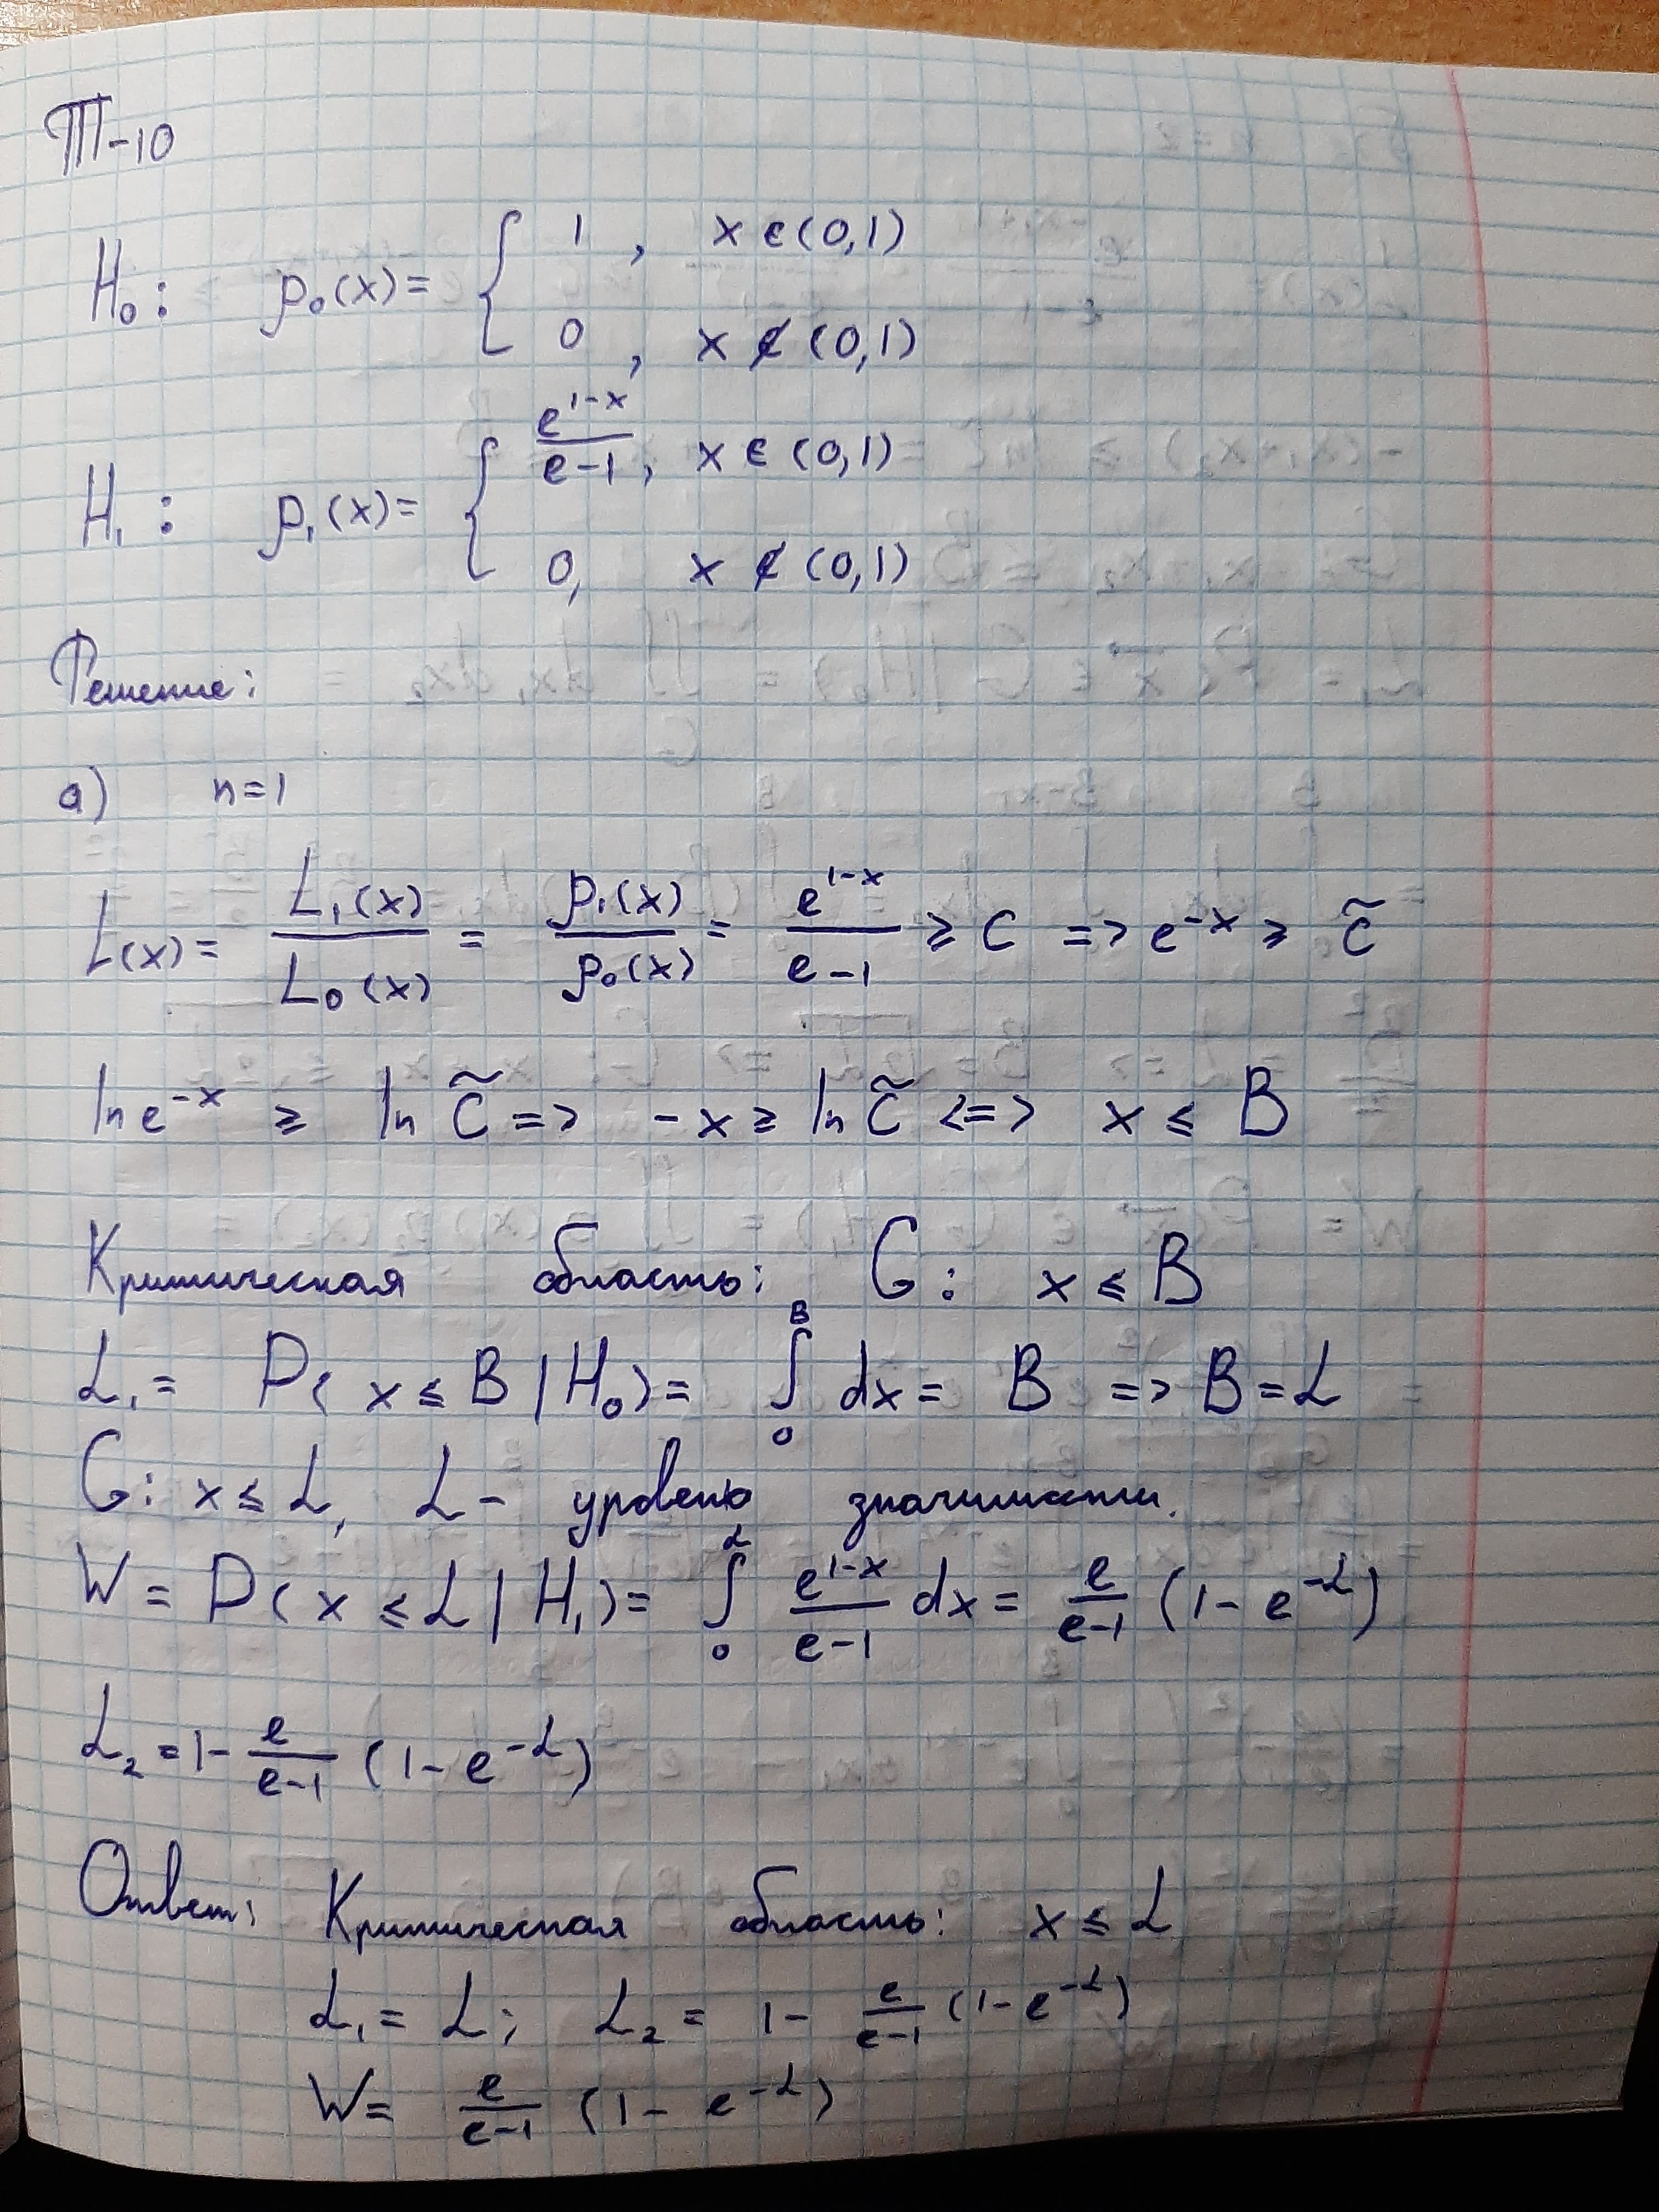 Т-10
H₀: p₀(x) = { 1, x ∈ (0,1)
0, x ∉ (0,1)
H₁: p₁(x) = { e^{1-x}/(e-1), x ∈ (0,1)
0, x ∉ (0,1)
Решение:
а) n=1
L(x) = L₁(x)/L₀(x) = p₁(x)/p₀(x) = e^{1-x}/(e-1) ≥ C => e^{-x} ≥ C̃
ln e^{-x} ≥ ln C̃ => -x ≥ ln C̃ <=> x ≤ B
Критическая область: G: x ≤ B
α₁ = P(x ≤ B | H₀) = ∫₀^B dx = B => B = α
G: x ≤ α, α - уровень значимости.
W = P(x ≤ α | H₁) = ∫₀^α e^{1-x}/(e-1) dx = e/(e-1) (1 - e^{-α})
α₂ = 1 - e/(e-1) (1 - e^{-α})
Ответ: Критическая область: x ≤ α
α₁ = α; α₂ = 1 - e/(e-1) (1 - e^{-α})
W = e/(e-1) (1 - e^{-α})